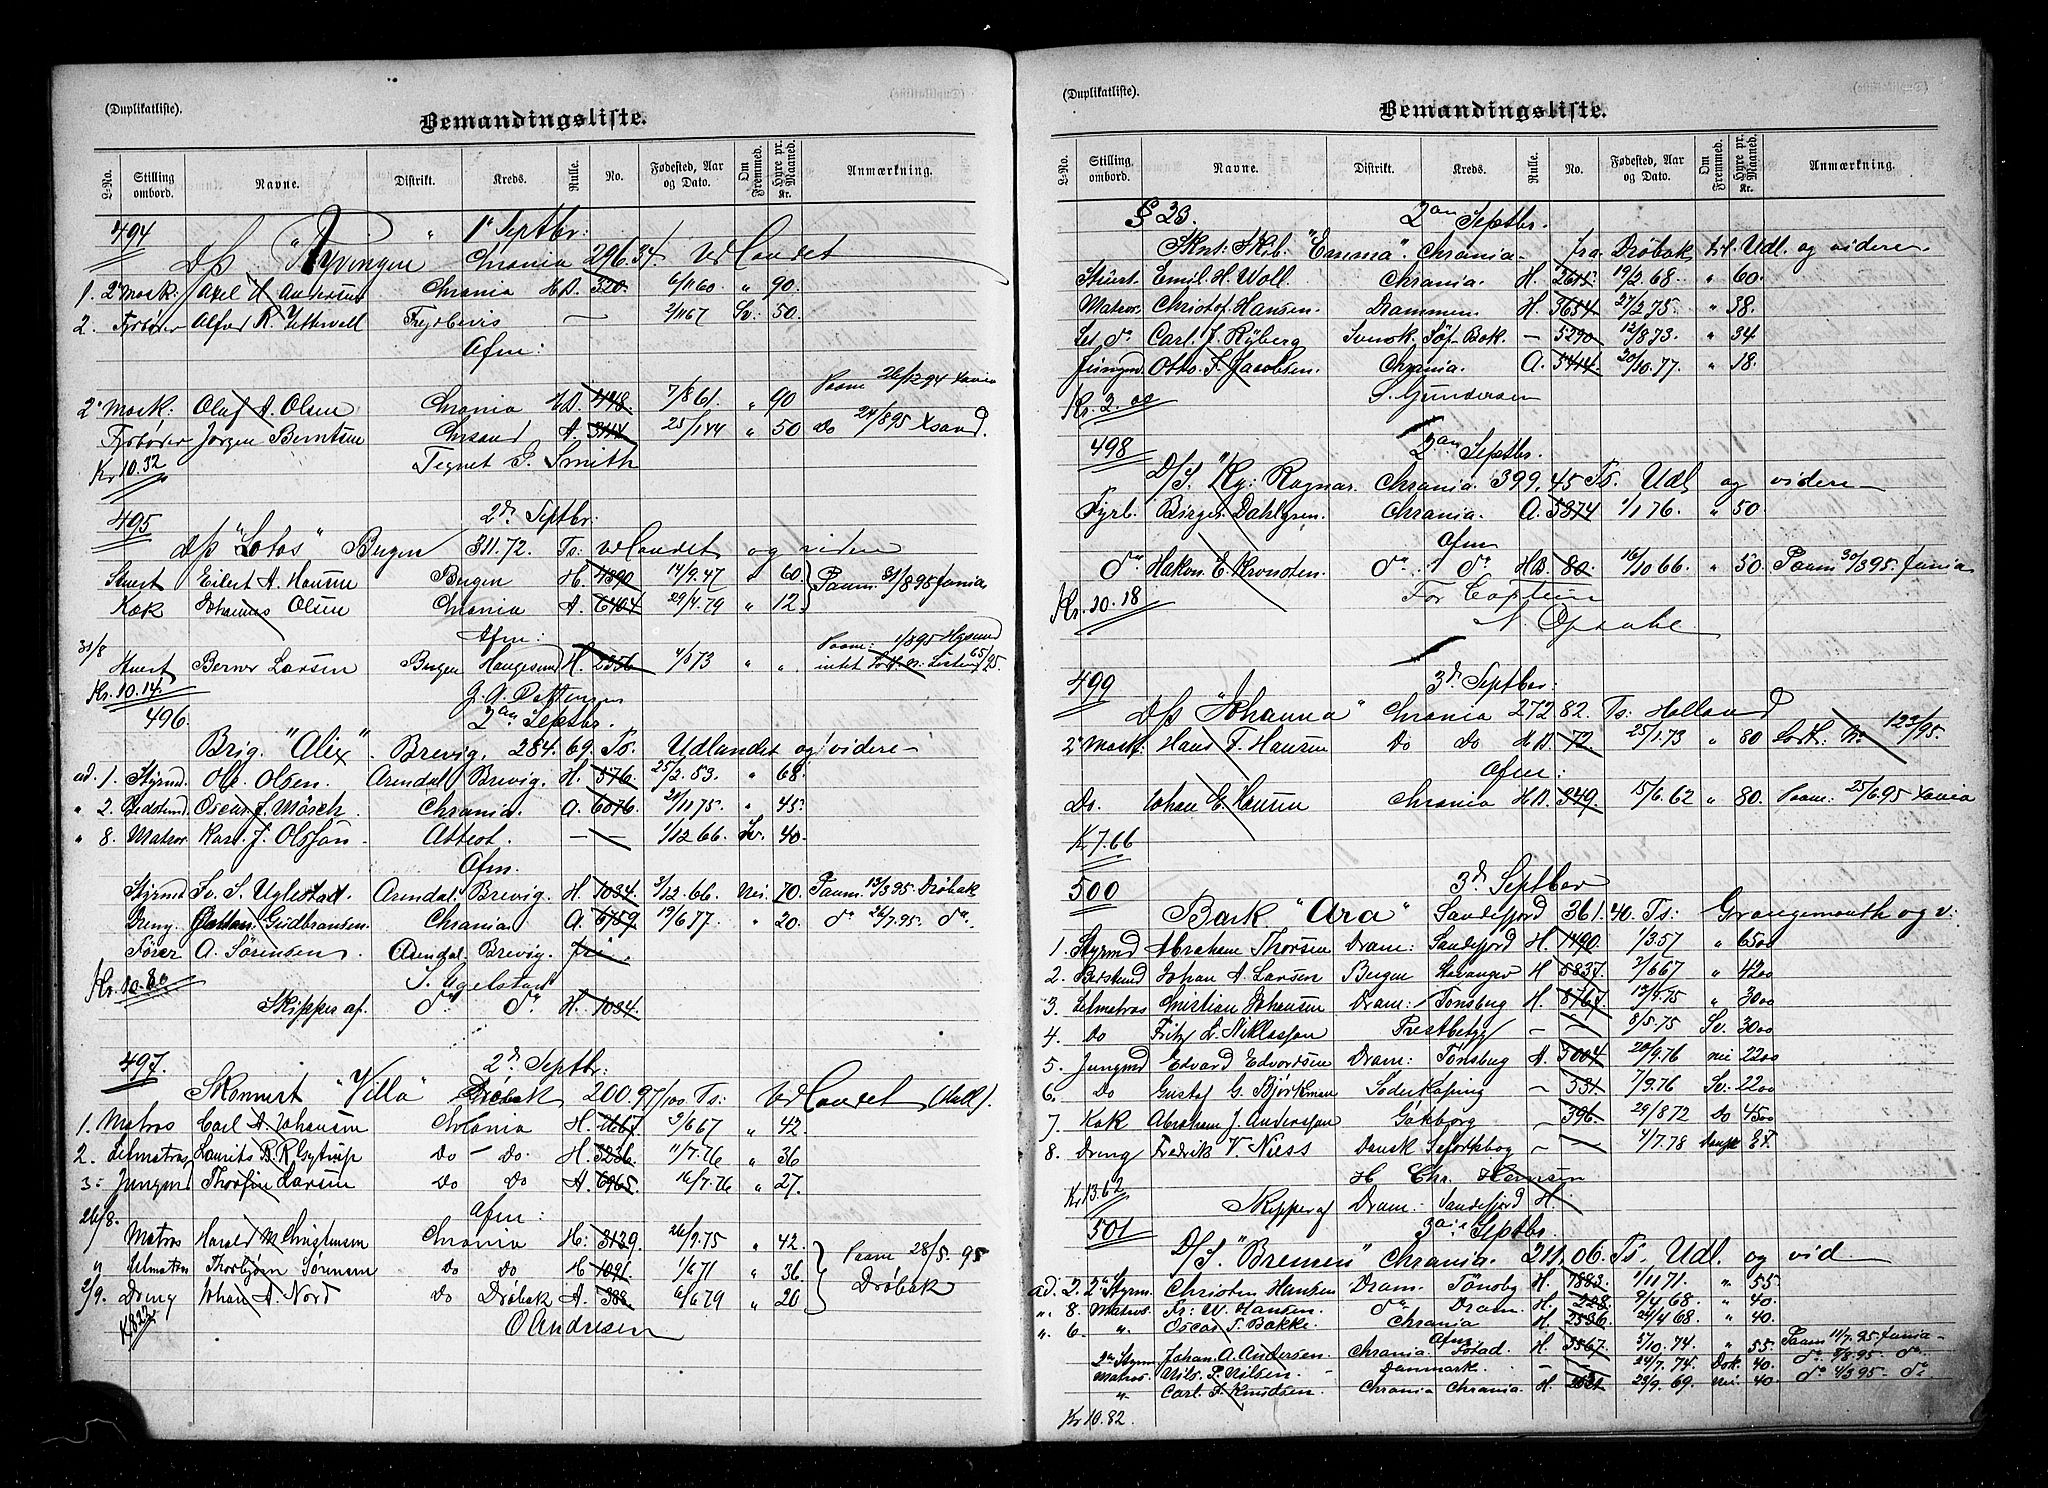 (Duplikatliste).
Bemandingsliste.
L-No. Stilling ombord. Navne. Distrikt. Kreds. Rulle. No. Fødested, Aar og Dato. Om Fremmed. Hyre pr. Maaned. Kr. Anmærkning.
494 1ste Septbr:
D/S "Tyringen" Chrania 296.34. Udlandet
1. 2' Mask: Axel H. Andersen Chrania H.D. 320. 6/1160 " 90.
2. Fyrbøter Alfred R. — 2/1167 Sv. 50.
Afm:
2' Mask: Olaf A. Olsen Chrania H.D. 448. 7/861. " 90 Paam 26/1294 Xania
Fyrbøter Jørgen Berntsen Chrsand A. 3114 25/144 " 50 Do 24/895 Xsand.
Kr 10.32 Tegnet P. Smith
495 2den Septbr:
D/S "Lotos" Bergen 311.72. Ts: Udlandet og viden
Stuert Eilert A. Hansen Bergen H. 4390 14/9.47 " 60 Paam 31/895 Xania
Kok Johannes Olsen Chrania A. 6404 29/4.79 " 12.
Afm:
31/8 Stuert Berner Larsen Bergen Haugesund H. 2356 4/873 " " Paam: 1/895 Hgsund
Kr. 10.14
496. 2den Septbr.
Brig. "Alix". Brevig. 284.69. Ts. Udlandet og videre
ad. 1. Styrmd. Ole Olsen. Arendal Brevig. H. 576. 25/2.53. " 68.
" 2. Bedstmd Oscar J. Mösch. Chrania. A. 6076. 21/1175. " 45.
" 8. Matros Karl J. Olsson. Attest. — 1/12.66. Sv. 40.
Afm.
Styrmd Sv. S. Uglestad. Arendal. Brevig. H. 1034. 3/12.66. Nei. 70. Paam. 13/395. Drøbak
Dreng. Gudbransen. Chrania. A. 6759. 19/677. " 20. do 26/7.95. do.
Fører A. Sørensen. Arendal. Brevig. fri.
Kr. 10.80 S. Ugelstad
Skipper af. do do H. 1034.
497. 2den Septbr:
Skonnert "Villa" Drøbak 200.97/100 Ts: Udlandet (Hull).
1. Matros Carl A. Johansen Chrania H. 2667. 3/667 " 42
2. Letmatros Laurits B. R. Gytrup Do — Do H. 3236. 11/7.76 " 36
3. Jungmd Thorfin Larsen Do Do A. 6965. 16/7.76 " 27.
Afm:
26/8. Matros Harald M. Christensen Chrania H. 3139. 26/9.75 " 42. Paam 28/5.95
" Letmatros Thorbjørn Sørensen Do Do H. 1091. 1/671 " 36 Drøbak
2/9. Dreng Johan A. Nord Do Drøbak A. 388. 6/679 " 20
K 8.22 O Andresen
(Duplikatliste).
Bemandingsliste.
L-No. Stilling ombord. Navne. Distrikt. Kreds. Rulle. No. Fødested, Aar og Dato. Om Fremmed. Hyre pr. Maaned. Kr. Anmærkning.
§ 23. 2den Septbr.
Sknt. Skib. "Emma". Chrania. fra Drøbak til Udl. og videre
Stuert. Emil H. Woll. Chrania. H. 2615. 19/2.68. " 60.
Matros. Christof. Hansen. Drammen. H. 3654. 27/2.75. " 38.
Let do. Carl. J. Ryberg Svensk. Søf. Bok. — 5290 12/8.73. " 34
Jungmd Otto. F. Jacobsen. Chrania. A. 5414. 20/10.77. " 18.
Kr. 2.00 S. Gundersen
498 2den Septbr.
D/S. "Kg: Ragnar. Chrania. 399.45 Ts. Udl og videre
Fyrb. Birger Dahlgren. Chrania. A. 5874 1/1.76. " 50.
Afm
do. Hakon E. Kronsten. do do H.B. 80. 16/10.66. " 50. Paam 30/395. Xania
Kr. 10.18 For Captein
N. Opsahl
499 3de Septbr:
D/S "Johanna" Chrania 272.82. Ts: Holland
2' Mask. Hans T. Hansen Do Do H.D. 72. 25/1.73 " 80
Afm:
Do. Johan E. Hansen Chrania H.D. 349. 15/6.62 " 80. Paam: 25/6.95 Xania
K 7.66
500 3de Septber
Bark "Ara" Sandefjord 361.40. Ts: Grangemouth og v:
1. Styrmd Abraham Thorsen Dram: Sandefjord H. 1490. 1/3.57 " 6500
2. Bestmd Johan A. Larsen Bergen Stavanger H 5837. 2/667 " 4200
3. Letmatros Christian Johansen Dram: Tønsberg H. 8767. 13/4.75 " 3000
4. Do Fritz L. Niklasson — — 8/5.75 Sv. 3000
5. Jungmd Edvard Edvardsen Dram: Tønsberg A. 5004. 20/9.76 nei 2200
6. Do Gustaf G. Björkman Söderköping — 531. 7/9.76 Sv. 2200
7. Kok Abraham J. Andersson Göteborg — 396. 29/872 Do 4500
8. Dreng Fredrik V. Niess Dansk Søfartsbog — 4/7.78 Dansk
Kr 13.62 H Chr. Hansen
Skipper af Dram: Sandefjord H.
501 3die Septbr.
D/S. "Bremen" Chrania. 211.06. Ts. Udl. og vid
ad. 2. 2den Styrm. Christen Hansen Dram. Tönsbg. H. 7883. 1/11.71. " 55.
" 8. Matros. Fr: W. Hansen. do Dram. H. 228. 9/4.68. " 40.
" 6. " Oscar T. Bakke. Chrania H. 2596. 24/4.68. " 40.
Afm
2den Styrm Johan. A. Andersen. Chrania. H. 3567. 5/10.74. " 55. Paam 11/7.95. Xania
Matros. Nils. P. Nilsen. Danmark. — — 24/7.74. Dok. 40. do 3/8.95. do.
" Carl. F. Knudsen. Chrania Chrania. H. 23/9.69. nei. 40. do 4/395. do
Kr 10.82.